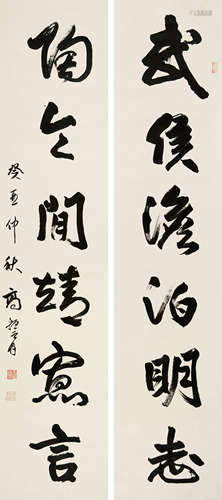 武侯澹泊明志
陶令閒靖寡言
癸亥仲秋 高